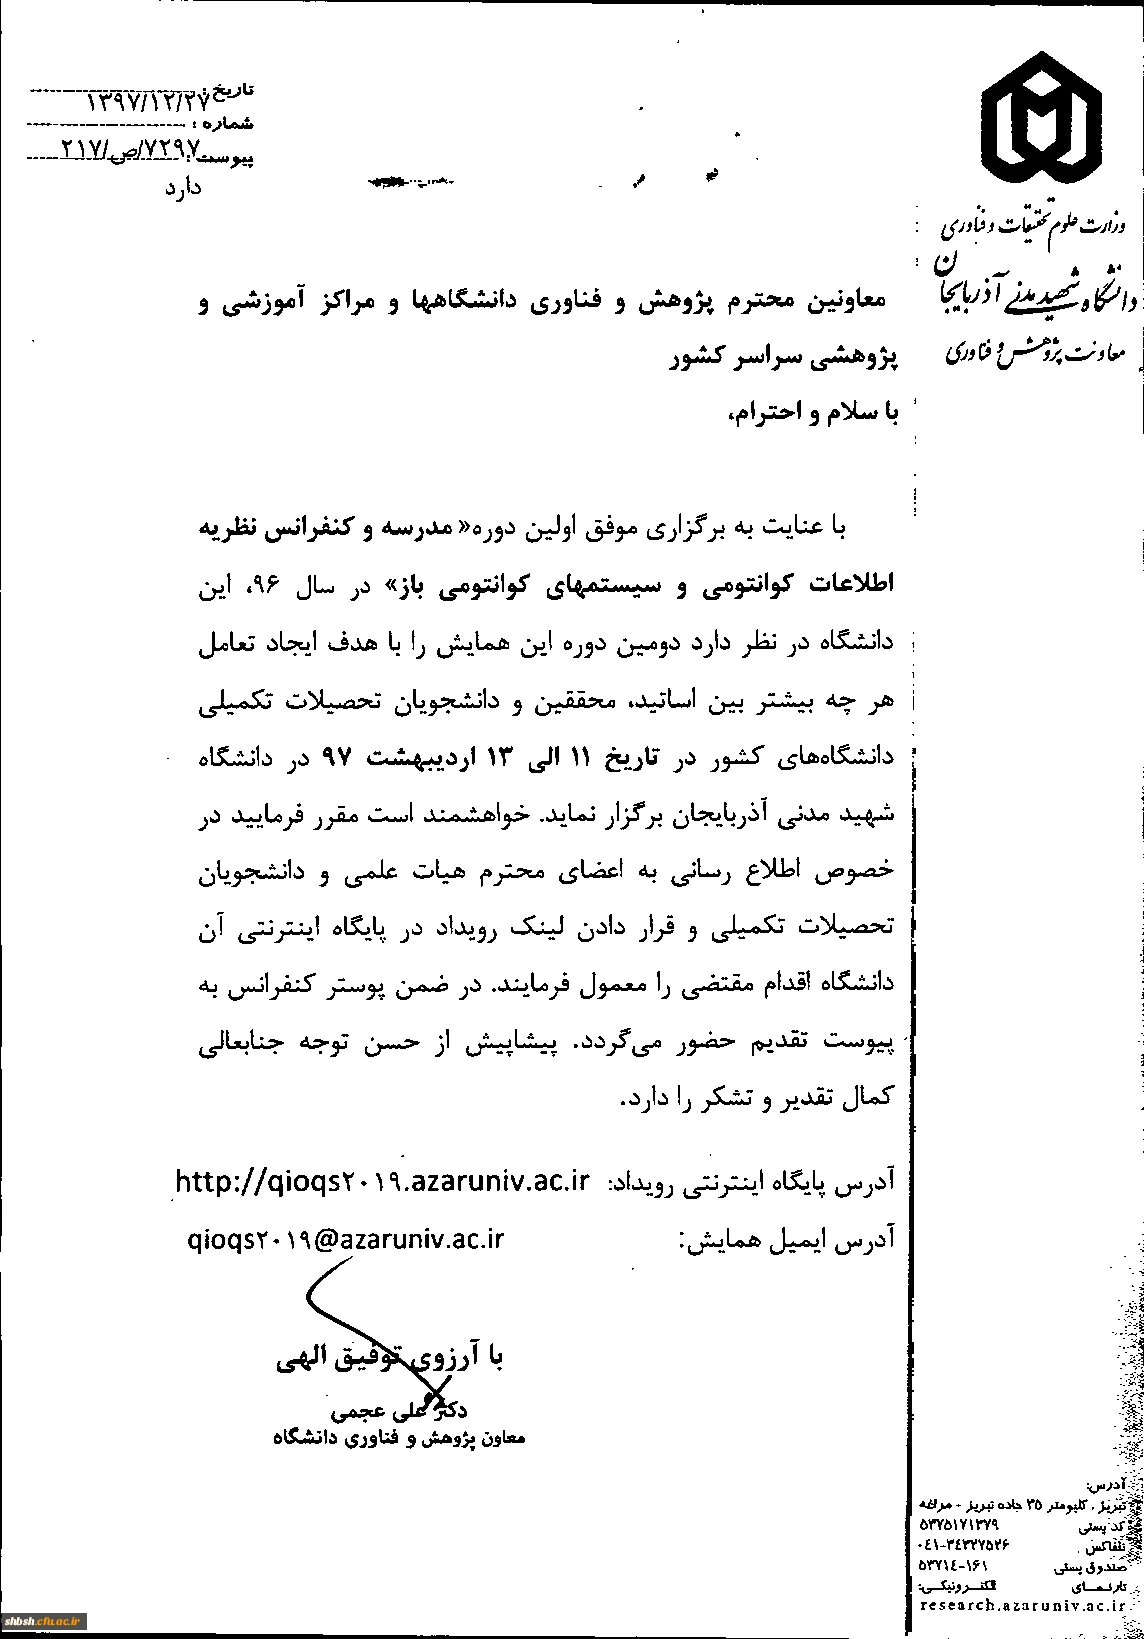 تاریخ : ۱۳۹۷/۱۲/۲۷
شماره :
پیوست: ۲۱۷/ص/۷۲۹۷
دارد
وزارت علوم تحقیقات و فناوری
دانشگاه شهید مدنی آذربایجان
معاونت پژوهش و فناوری
معاونین محترم پژوهش و فناوری دانشگاهها و مراکز آموزشی و
پژوهشی سراسر کشور
با سلام و احترام،
با عنایت به برگزاری موفق اولین دوره« مدرسه و کنفرانس نظریه
اطلاعات کوانتومی و سیستمهای کوانتومی باز» در سال ۹۶، این
دانشگاه در نظر دارد دومین دوره این همایش را با هدف ایجاد تعامل
هر چه بیشتر بین اساتید، محققین و دانشجویان تحصیلات تکمیلی
دانشگاه‌های کشور در تاریخ ۱۱ الی ۱۳ اردیبهشت ۹۷ در دانشگاه
شهید مدنی آذربایجان برگزار نماید. خواهشمند است مقرر فرمایید در
خصوص اطلاع رسانی به اعضای محترم هیات علمی و دانشجویان
تحصیلات تکمیلی و قرار دادن لینک رویداد در پایگاه اینترنتی آن
دانشگاه اقدام مقتضی را معمول فرمایند. در ضمن پوستر کنفرانس به
پیوست تقدیم حضور می‌گردد. پیشاپیش از حسن توجه جنابعالی
کمال تقدیر و تشکر را دارد.
آدرس پایگاه اینترنتی رویداد: http://qioqs۲۰۱۹.azaruniv.ac.ir
آدرس ایمیل همایش: qioqs۲۰۱۹@azaruniv.ac.ir
با آرزوی توفیق الهی
دکتر علی عجمی
معاون پژوهش و فناوری دانشگاه
آدرس:
تبریز ، کلیومتر ۳۵ جاده تبریز - مراغه
کد پستی ۵۳۷۵۱۷۱۳۷۹
تلفاکس . ۰۴۱-۳۴۳۲۷۵۲۶
صندوق پستی ۵۳۷۱٤-۱۶۱
تارنمای الکترونیکی:
research.azaruniv.ac.ir
shbsh.cfu.ac.ir